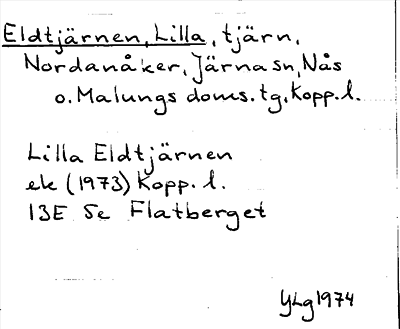 Eldtjärnen, Lilla, tjärn,
Nordanåker, Järna sn, Nås
o. Malungs doms. tg, Kopp. l.
Lilla Eldtjärnen
ek (1973) Kopp. l.
13E 5e Flatberget
YLg 1974